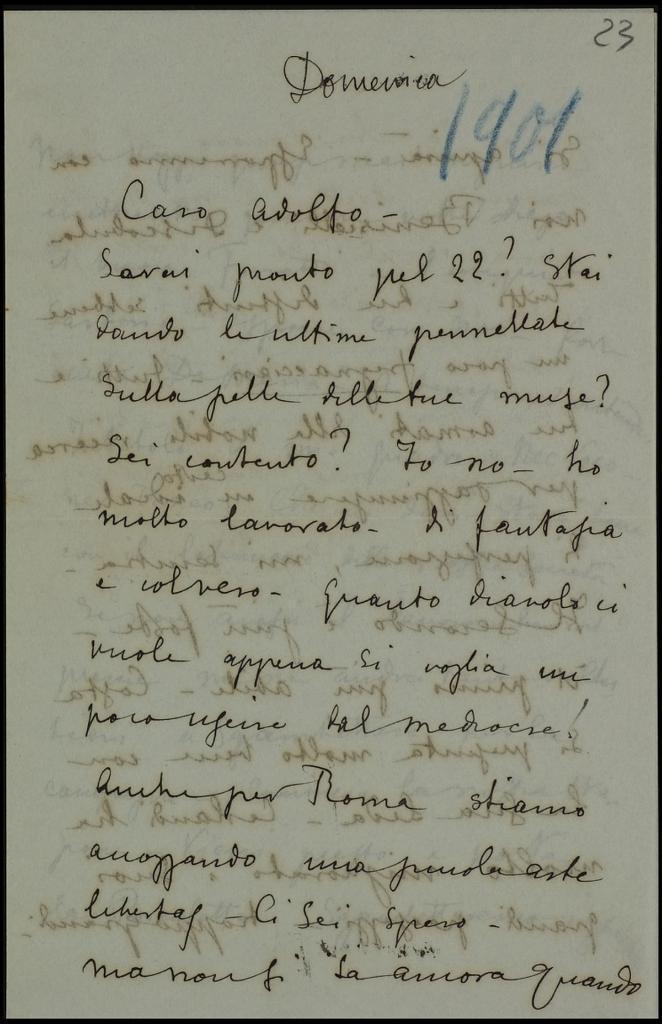 23
Domenica
1901
Caro Adolfo -
Sarai pronto pel 22? Stai
dando le ultime pennellate
sulla pelle delle tue muse?
Sei contento? Io no - ho
molto lavorato - di fantasia
e col vero - Quanto diavolo ci
vuole appena si voglia un
poco uscire dal mediocre!
Anche per Roma stiamo
accozzando una piccola arte
libertas - Ci sei spero -
ma non si sa ancora quando